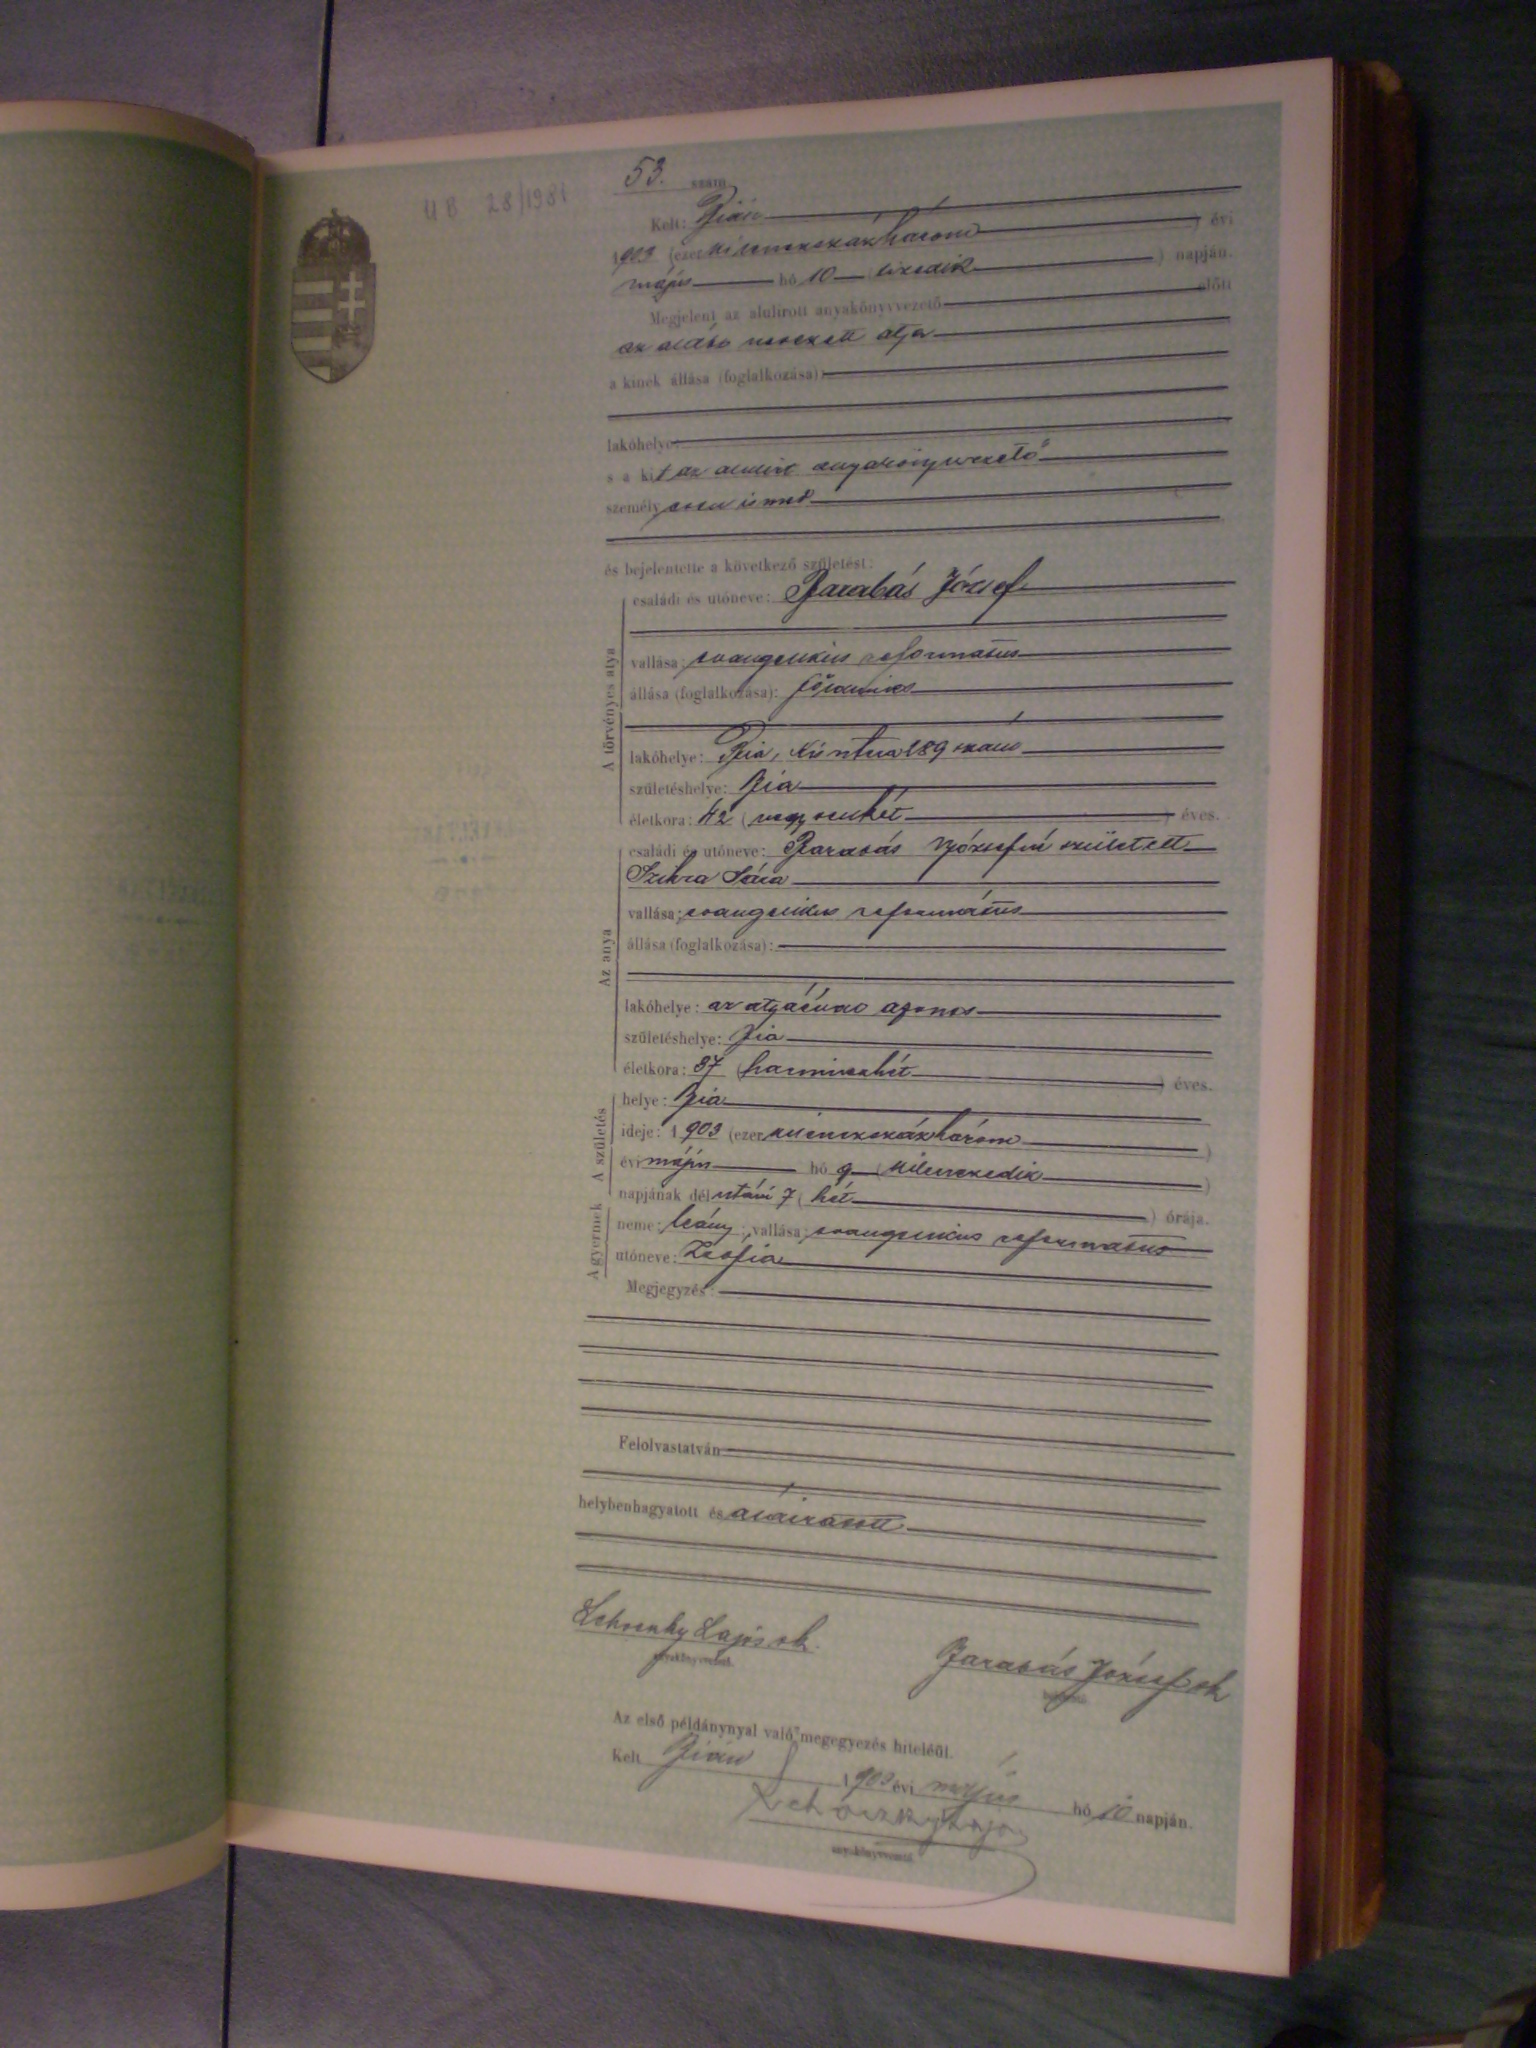 U B 28/1981
53. szám
Kelt: Bián
1903 (ezer kilencszázhárom ) évi
május hó 10 (tizedik ) napján.
Megjelent az alulirott anyakönyvvezető előtt
az alább nevezett atya
a kinek állása (foglalkozása):
lakóhelye:
s a kit az alulírt anyakönyvvezető
személyesen ismer
és bejelentette a következő születést:
A törvényes atya
családi és utóneve: Barabás József
vallása: evangelikus református
állása (foglalkozása): földmives
lakóhelye: Bia, 189 szám
születéshelye: Bia
életkora: 42 (negyvenkét ) éves.
Az anya
családi és utóneve: Barabás Józsefné született
Szikra Sára
vallása: evangelikus református
állása (foglalkozása):
lakóhelye: az atyáéval azonos
születéshelye: Bia
életkora: 37 (harminczhét ) éves.
A születés
helye: Bia
ideje: 1903 (ezer kilenczszázhárom )
évi május hó 9 (kilenczedik )
napjának délutáni 7 (hét ) órája.
A gyermek
neme: leány; vallása: evangelikus református
utóneve: Zsófia
Megjegyzés:
Felolvastatván
helybenhagyatott és aláiratott
Lajos sk. Barabás József sk
anyakönyvvezető. bejelentő.
Az első példánynyal való megegyezés hiteléül.
Kelt Bián 1903 évi május hó 10 napján.
anyakönyvvezető.